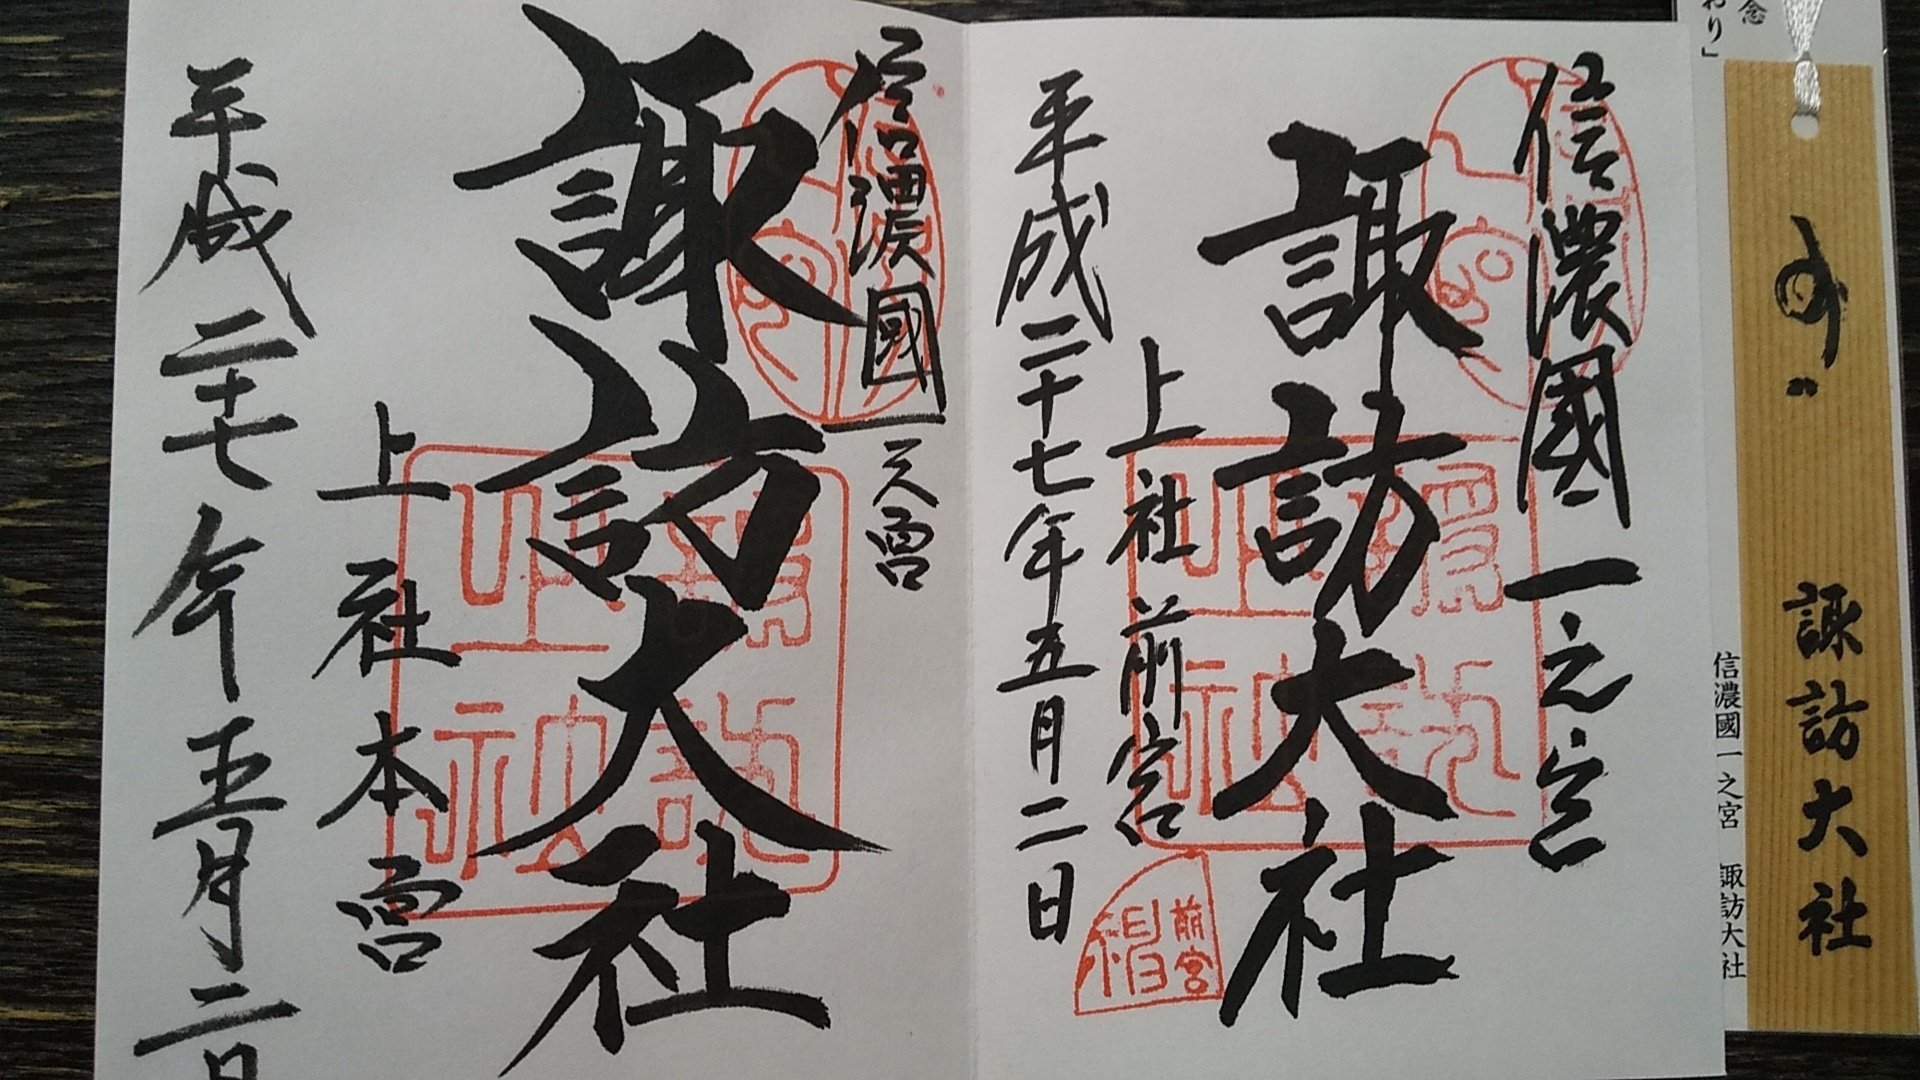 念
おり」
諏訪大社
信濃國一之宮 諏訪大社
信濃國一之宮
諏訪大社
上社前宮
平成二十七年五月二日
前宮
信濃國一之宮
諏訪大社
上社本宮
平成二十七年五月二日